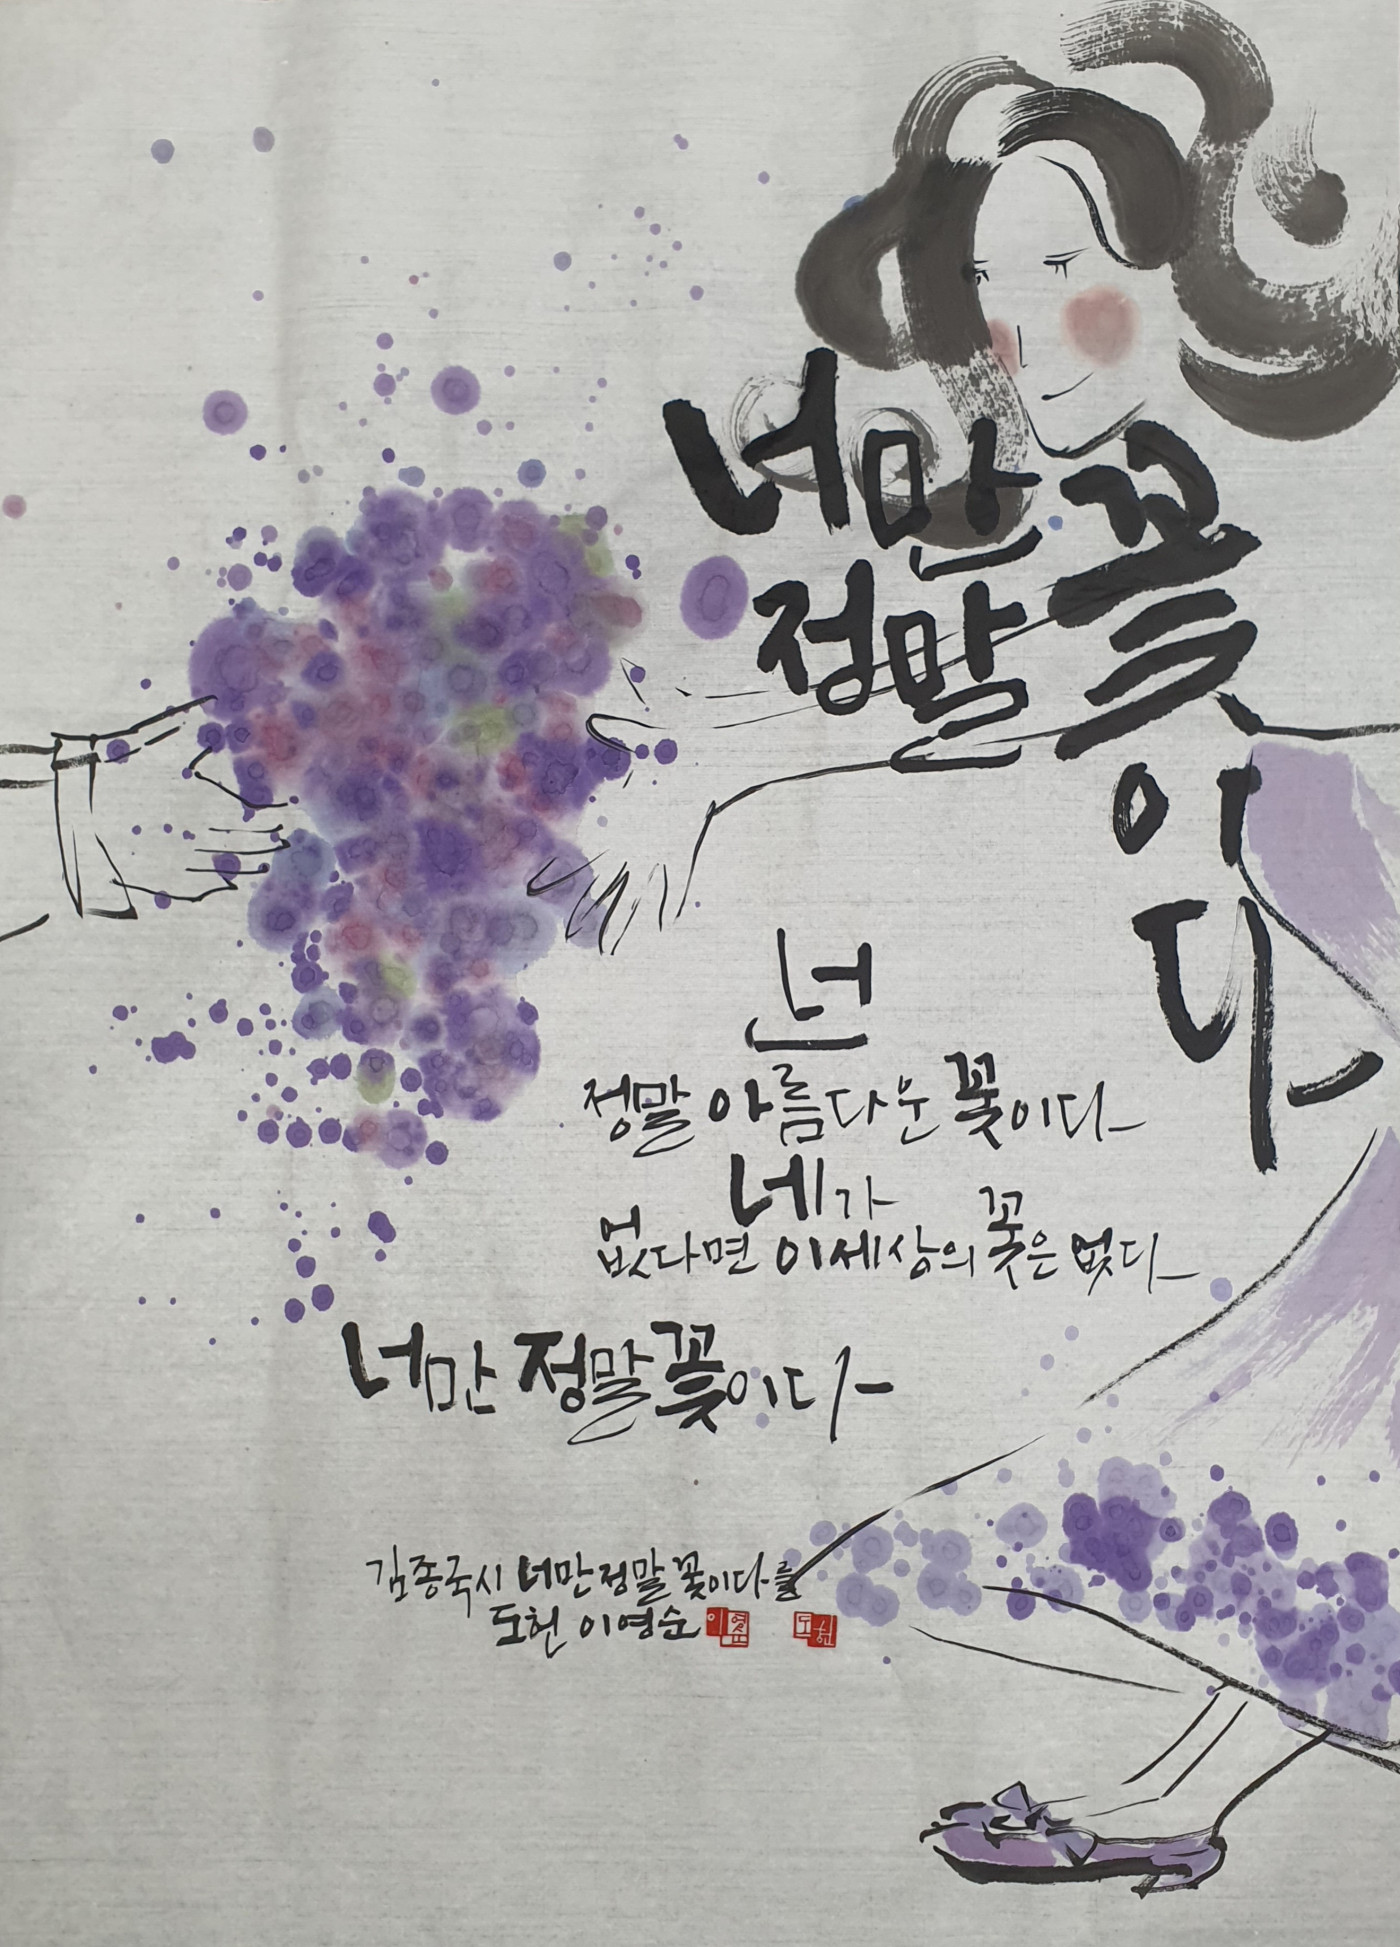 너만
정말
꽃이다
넌
정말 아름다운 꽃이다
네가
없다면 이세상의 꽃은 없다
너만 정말 꽃이다
김종국시 너만정말꽃이다를
도헌 이영순